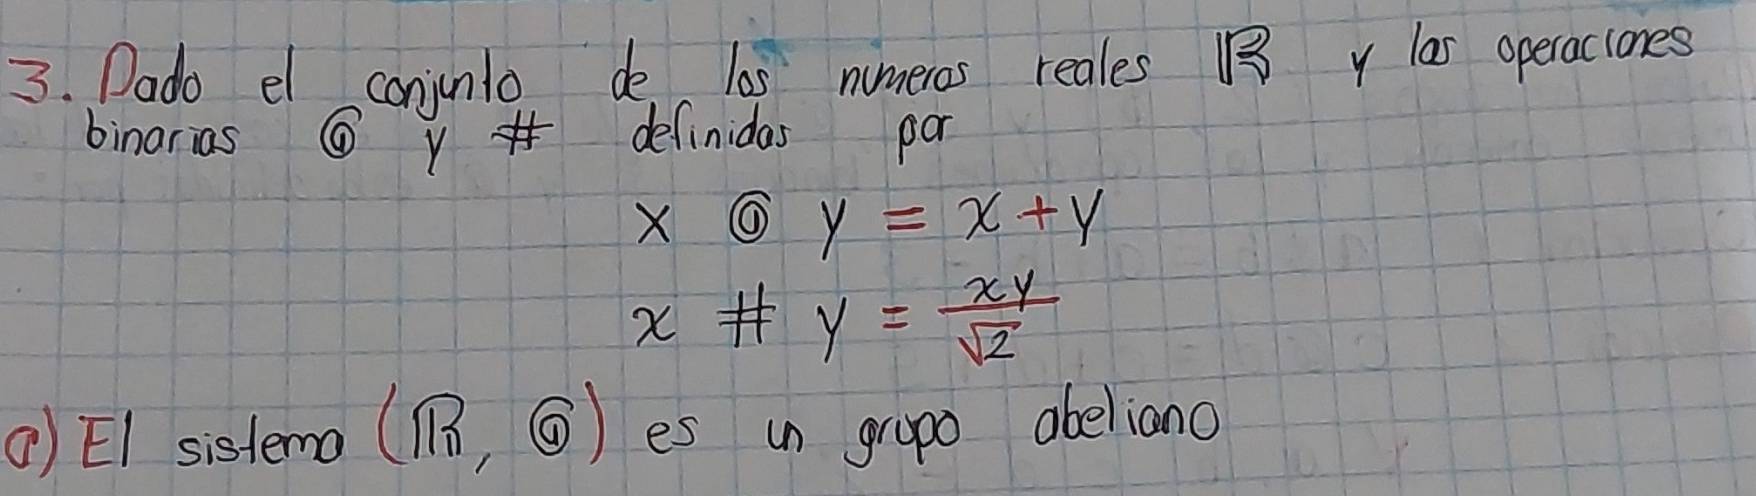 3. Dado el conjunto de los numeros reales ℝ y las operaciones
binarias ⊚ y # definidas por
x ⊚ y = x + y
x # y = xy/√2
a) El sistema (ℝ, ⊚) es un grupo abeliano